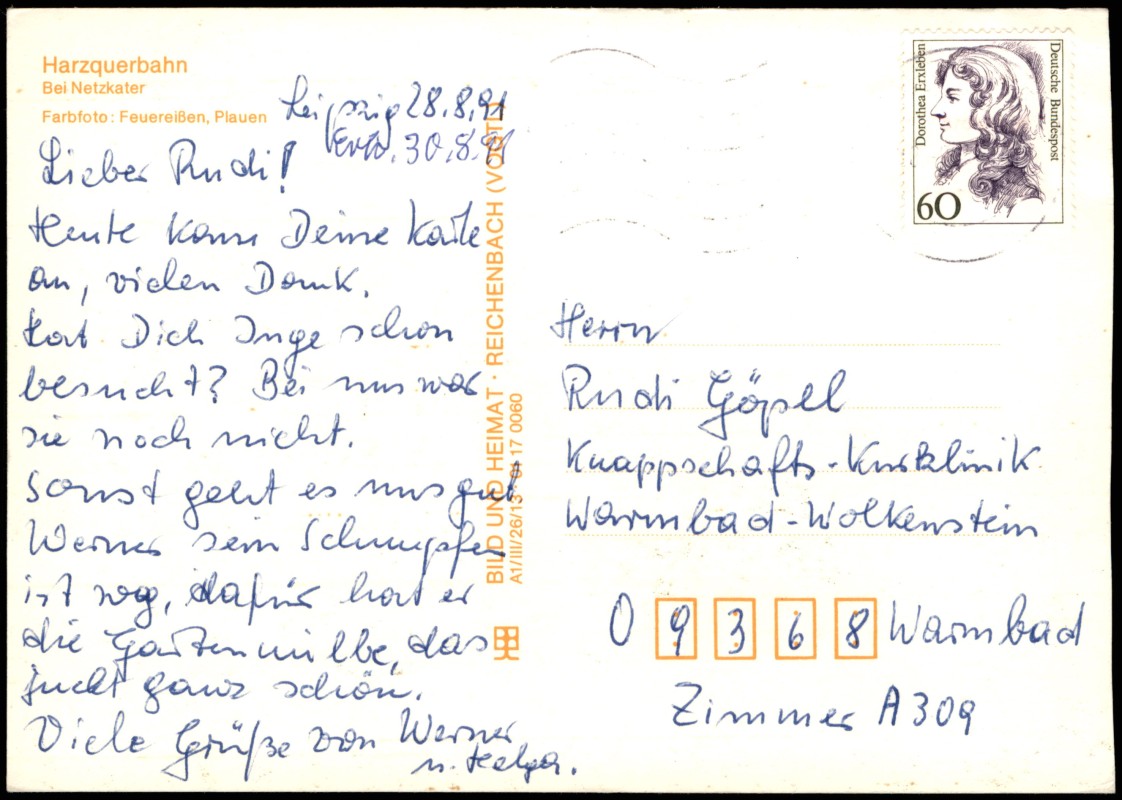 Harzquerbahn
Bei Netzkater
Farbfoto: Feuereißen, Plauen
Leipzig 28.8.91
Erh. 30.8.91
Lieber Rudi!
Heute kam Deine Karte
an, vielen Dank.
Hat Dich Inge schon
besucht? Bei uns war
sie noch nicht.
Sonst geht es uns gut
Werner sein Schnupfen
ist weg, dafür hat er
die Gartenmilbe, das
juckt ganz schön.
Viele Grüße von Werner
u. Helga.
BILD UND HEIMAT · REICHENBACH (VOGTL)
A1/III/26/13 17 0060
Dorothea Erxleben
Deutsche Bundespost
60
Herrn
Rudi Göpel
Knappschafts-Kurklinik
Warmbad-Wolkenstein
O 9 3 6 8 Warmbad
Zimmer A 309